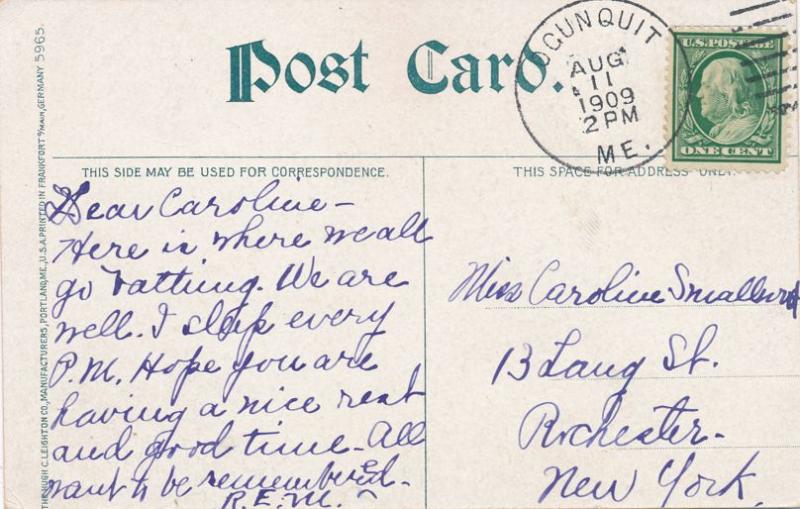 Post Card.
OGUNQUIT
AUG
11
1909
2 PM
ME.
U.S. POSTAGE
ONE CENT
THIS SIDE MAY BE USED FOR CORRESPONDENCE.
THIS SPACE FOR ADDRESS ONLY.
Dear Caroline-
Here is where we all
go bathing. We are
well. I sleep every
P.M. Hope you are
having a nice rest
and good time. All
want to be remembered.
R.E.M.
Miss Caroline Smallwood
13 Lang St.
Rochester-
New York.
THE HUGH C. LEIGHTON CO., MANUFACTURERS, PORTLAND, ME., U.S.A. PRINTED IN FRANKFORT o/MAIN, GERMANY 5965.